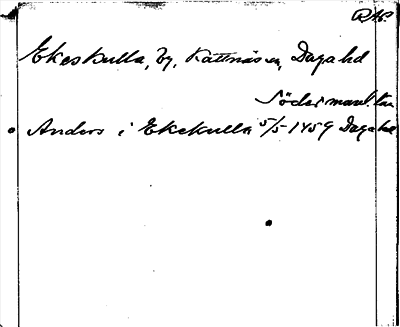 RAP.
Ekeskulla, by, Kattnäs sn, Daga hd
Södermanl. län
Anders i Ekekulla 5/5-1459 Daga hd